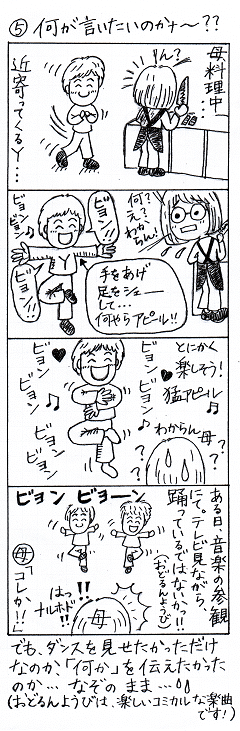 ⑤ 何が言いたいのかナ〜??
母、料理中…
ん?
近寄ってくるY…
何?
え?
わからん!
ビヨン!!
ビヨン!!
ビヨン
ビヨン♪
手をあげ
足をシェー
して…
何やらアピール!!
とにかく
楽しそう!
猛アピール
ビヨン
ビヨン♪
ビヨン
ビヨン
♪
わからん
母
?
?
?
?
ある日、音楽の参観
にて。テレビ見ながら、
踊っているではないか、!!
(おどるんようび)
ビヨン ビヨーン
はっ!!
ナルホド!!
母
母「コレか!!」
でも、ダンスを見せたかっただけ
なのか、「何か」を伝えたかった
のか… なぞのまま…
(おどるんようびは、楽しいコミカルな楽曲
です!)